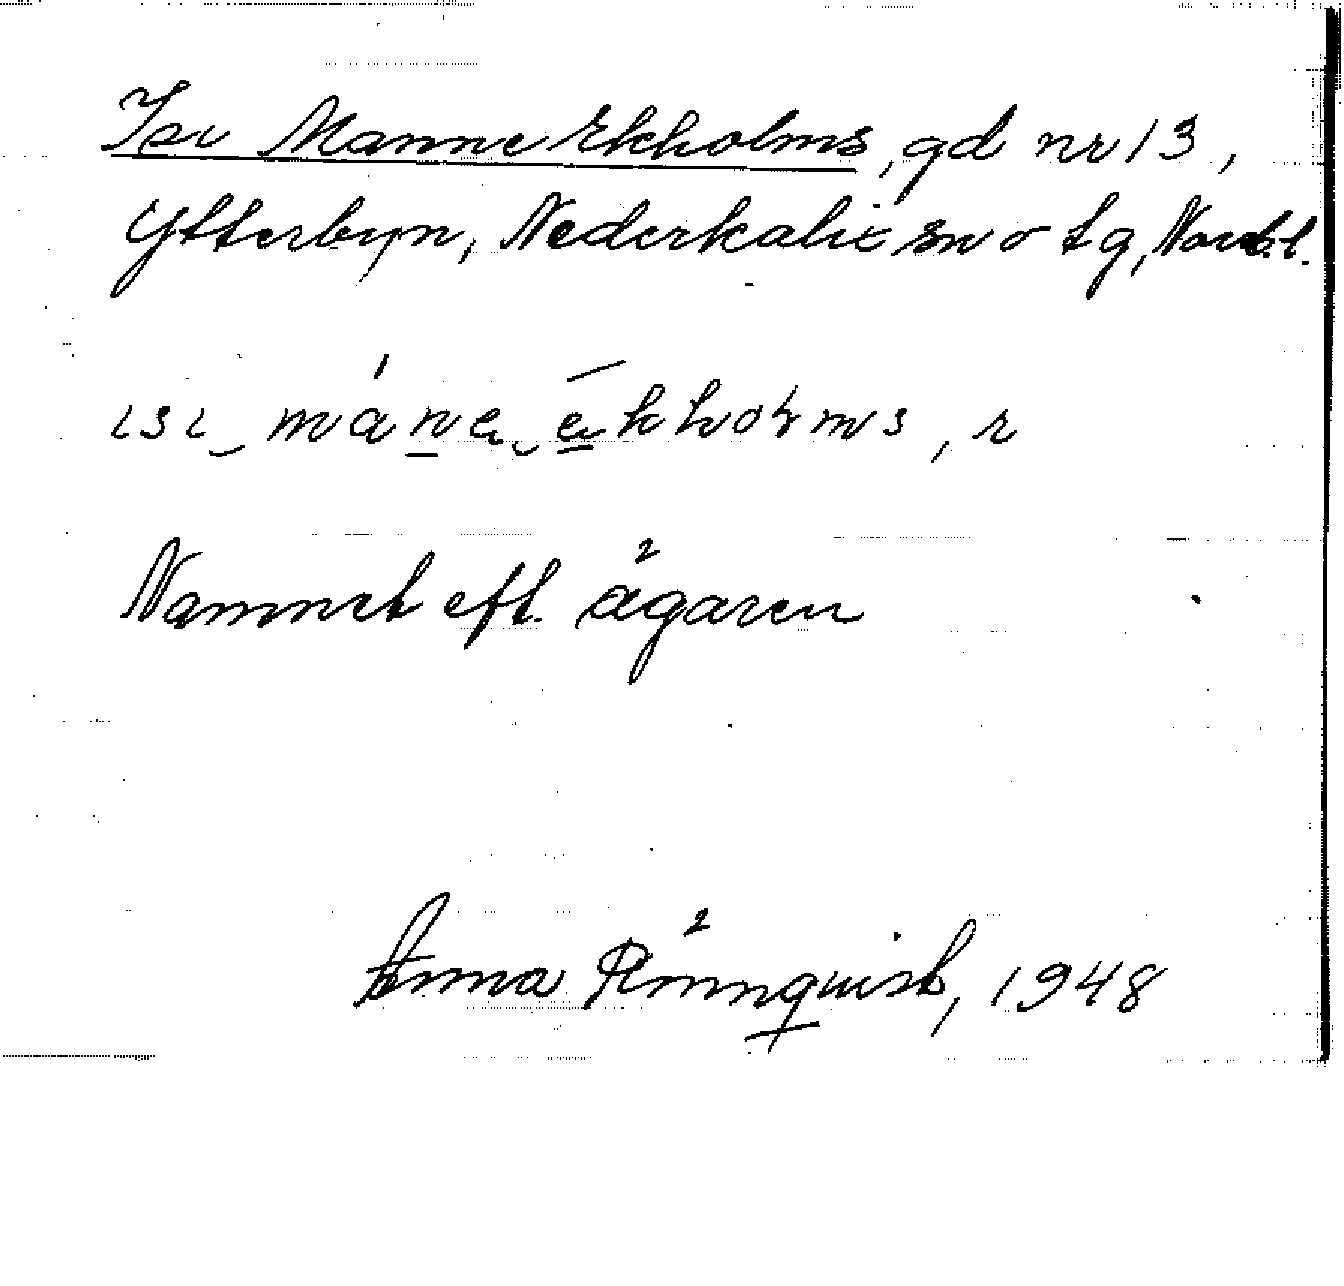 Isi Manne Ekholms, gd nr 13,
Ytterbyn, Nederkalix sn o tg, Norrb.l.
ısı máne ekhoɫms, r
Namnet eft. ägaren
Anna Rönnquist, 1948